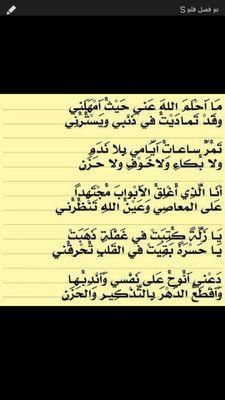 تم فصل قلم S
مَا اَحْلَمَ اللهَ عَني حَيْثُ اَمْهَلَنِي
وقَدْ تَمادَيْتُ في ذَنْبي ويَسْتُرُنِي
تَمُرُّ ساعاتُ اَيّامي بِلا نَدَمٍ
ولا بُكاءٍ وَلاخَوْفٍ ولا حَزَنٍ
اَنَا الَّذِي اُغْلِقُ الاَبْوابَ مُجْتَهِداً
عَلى المعاصِي وَعَيْنُ اللهِ تَنْظُرُني
يَا زَلَّةً كُتِبَتْ في غَفْلَةٍ ذَهَبَتْ
يَا حَسْرَةً بَقِيَتْ في القَلبِ تُحْرِقُني
دَعْني اَنُوحُ عَلى نَفْسي وَاَنْدِبُها
وَاَقْطَعُ الدَهْرَ بِالتَّذْكيرِ وَالحَزَنِ